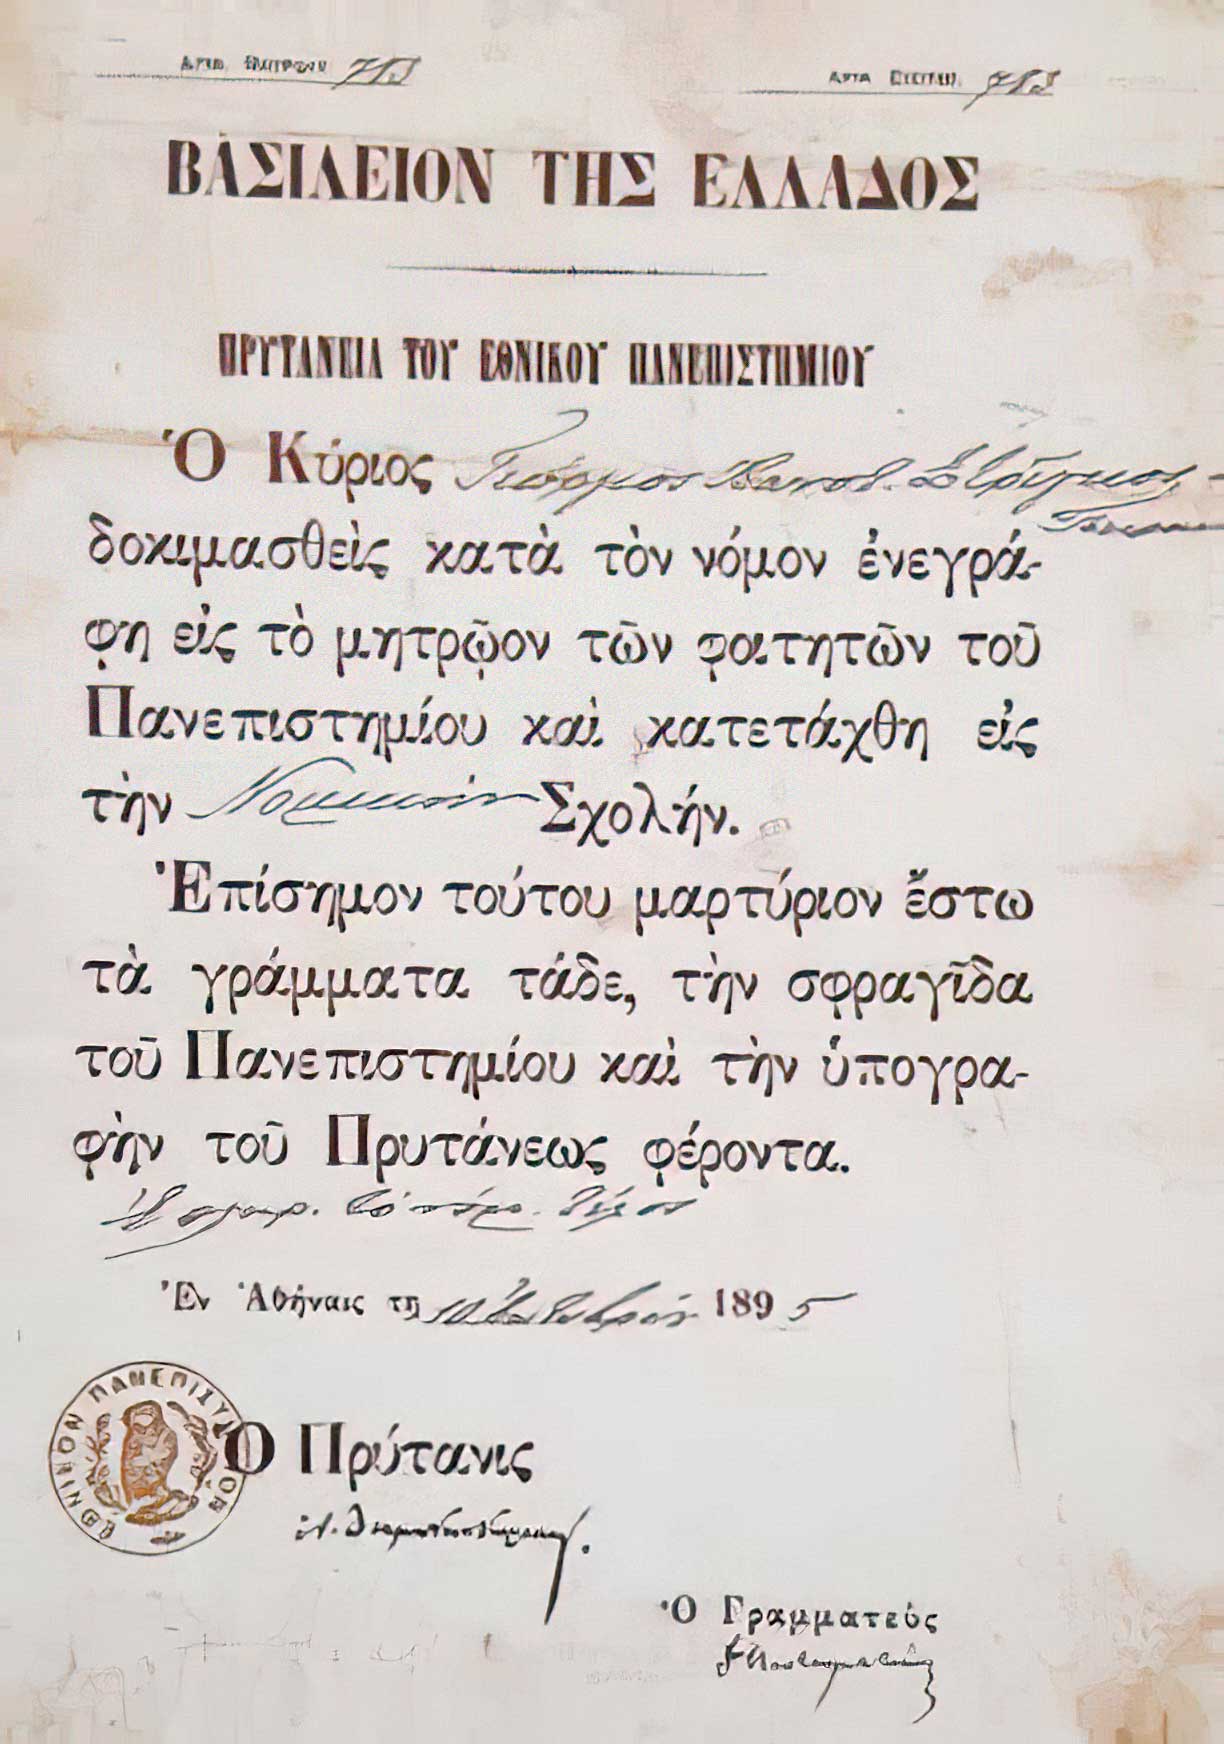 ΒΑΣΙΛΕΙΟΝ ΤΗΣ ΕΛΛΑΔΟΣ
ΠΡΥΤΑΝΕΙΑ ΤΟΥ ΕΘΝΙΚΟΥ ΠΑΝΕΠΙΣΤΗΜΙΟΥ
Ὁ Κύριος Γεώργιος
δοκιμασθεὶς κατὰ τὸν νόμον ἐνεγρά-
φη εἰς τὸ μητρῷον τῶν φοιτητῶν τοῦ
Πανεπιστημίου καὶ κατετάχθη εἰς
τὴν Νομικὴν Σχολήν.
Ἐπίσημον τούτου μαρτύριον ἔστω
τὰ γράμματα τάδε, τὴν σφραγῖδα
τοῦ Πανεπιστημίου καὶ τὴν ὑπογρα-
φὴν τοῦ Πρυτάνεως φέροντα.
Ἐν Ἀθήναις τῇ 10 Ὀκτωβρίου 1895
ΕΘΝΙΚΟΝ ΠΑΝΕΠΙΣΤΗΜΙΟΝ
Ὁ Πρύτανις
Ὁ Γραμματεὺς